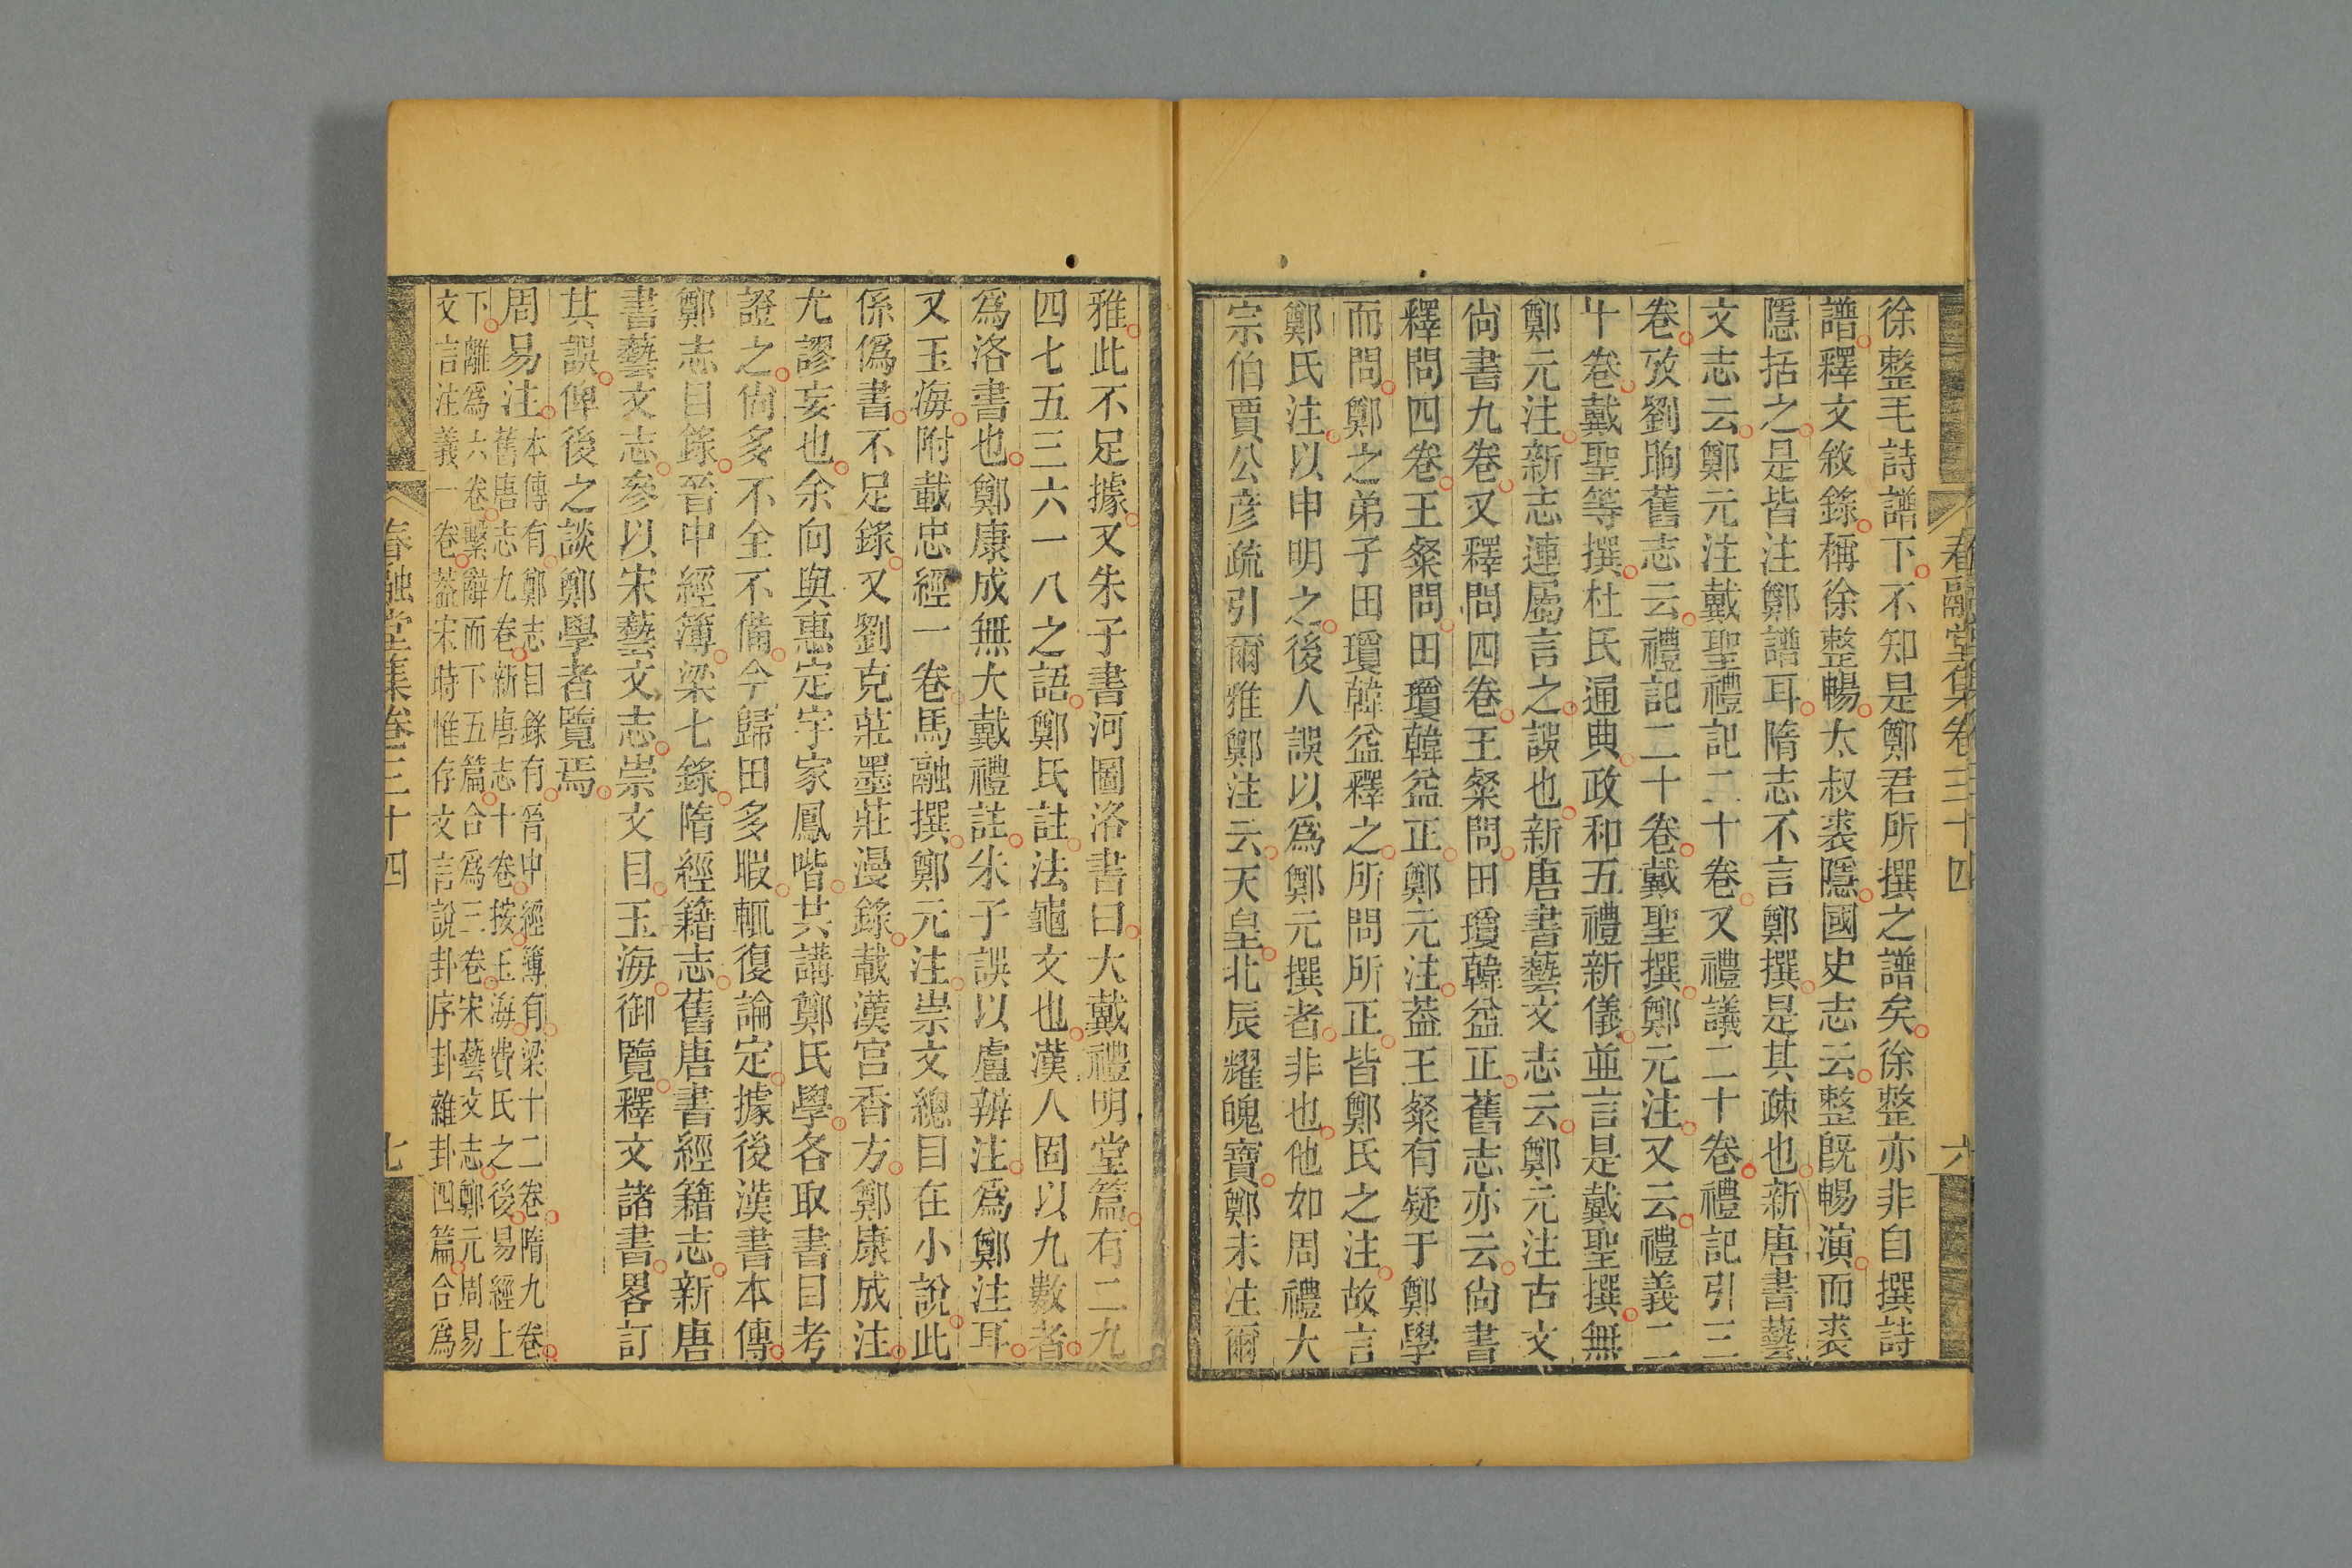 春融堂集卷三十四
六
徐整毛詩譜下不知是鄭君所撰之譜矣徐整亦非自撰詩
譜釋文敘錄稱徐整暢太叔裘隱國史志云整旣暢演而裘
隱括之是皆注鄭譜耳隋志不言鄭撰是其疎也新唐書藝
文志云鄭元注戴聖禮記二十卷又禮議二十卷禮記引三
卷攷劉昫舊志云禮記二十卷戴聖撰鄭元注又云禮義二
十卷戴聖等撰杜氏通典政和五禮新儀並言是戴聖撰無
鄭元注新志連屬言之誤也新唐書藝文志云鄭元注古文
尙書九卷又釋問四卷王粲問田瓊韓益正舊志亦云尙書
釋問四卷王粲問田瓊韓益正鄭元注葢王粲有疑于鄭學
而問鄭之弟子田瓊韓益釋之所問所正皆鄭氏之注故言
鄭氏注以申明之後人誤以爲鄭元撰者非也他如周禮大
宗伯賈公彦疏引爾雅鄭注云天皇北辰耀魄寶鄭未注爾
雅此不足據又朱子書河圖洛書曰大戴禮明堂篇有二九
四七五三六一八之語鄭氏註法龜文也漢人固以九數者
爲洛書也鄭康成無大戴禮註朱子誤以盧辨注爲鄭注耳
又玉海附載忠經一卷馬融撰鄭元注崇文總目在小說此
係僞書不足錄又劉克莊墨莊漫錄載漢宮香方鄭康成注
尤謬妄也余向與惠定宇家鳳喈其講鄭氏學各取書目考
證之尙多不全不備今歸田多暇輒復論定據後漢書本傳
鄭志目錄晉中經簿梁七錄隋經籍志舊唐書經籍志新唐
書藝文志參以宋藝文志崇文目玉海御覽釋文諸書畧訂
其誤俾後之談鄭學者覽焉
周易注
本傳有鄭志目錄有晉中經簿有梁十二卷隋九卷
舊唐志九卷新唐志十卷按玉海費氏之後易經上
下離爲六卷繫辭而下五篇合爲三卷宋藝文志鄭元周易
文言注義一卷葢宋時惟存文言說卦序卦雜卦四篇合爲
春融堂集卷三十四
七